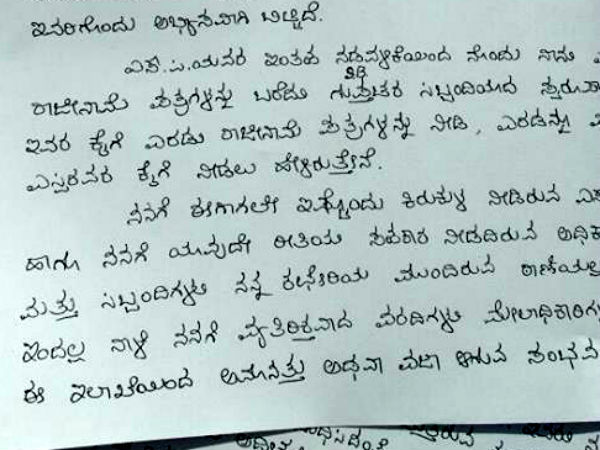 ಇವರಿಗೊಂದು ಅಭ್ಯಾಸವಾಗಿ ಬಿಟ್ಟಿದೆ.
ಎಸ್.ಪಿ.ಯವರ ಇಂತಹ ನಡವಳಿಕೆಯಿಂದ ನೊಂದು ನಾನು
ರಾಜೀನಾಮೆ ಪತ್ರಗಳನ್ನು ಬರೆದು ಗುಪ್ತಚರ ಸಿಬ್ಬಂದಿಯಾದ
ಇವರ ಕೈಗೆ ಎರಡು ರಾಜೀನಾಮೆ ಪತ್ರಗಳನ್ನು ನೀಡಿ, ಎರಡನ್ನೂ
ಎಸ್ಪಿರವರ ಕೈಗೆ ನೀಡಲು ಹೇಳಿರುತ್ತೇನೆ.
ನನಗೆ ಈಗಾಗಲೇ ಇಷ್ಟೊಂದು ಕಿರುಕುಳ ನೀಡಿರುವ
ಹಾಗೂ ನನಗೆ ಯಾವುದೇ ರೀತಿಯ ಸಹಕಾರ ನೀಡದಿರುವ
ಮತ್ತು ಸಿಬ್ಬಂದಿಗಳು ನನ್ನ ಕಛೇರಿಯ ಮುಂದಿರುವ
ಇಂದಲ್ಲ ನಾಳೆ ನನಗೆ ವ್ಯತಿರಿಕ್ತವಾದ ವರದಿಗಳು
ಈ ಇಲಾಖೆಯಿಂದ ಅಮಾನತ್ತು ಅಥವಾ ವಜಾ ಆಗುವ